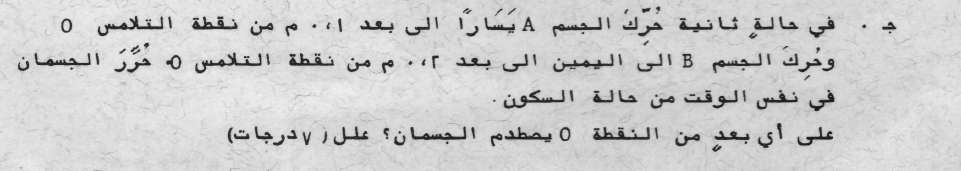 جـ . في حالةٍ ثانية حُرِّكَ الجسم A يَسَارًا الى بعد ٠،١ م من نقطة التلامس O
وحُرِكَ الجسم B الى اليمين الى بعد ٠،٢ م من نقطة التلامس O. حُرَّرَ الجسمان
في نفس الوقت من حالة السكون.
على أي بعدٍ من النقطة O يصطدم الجسمان؟ علل (٧ درجات)